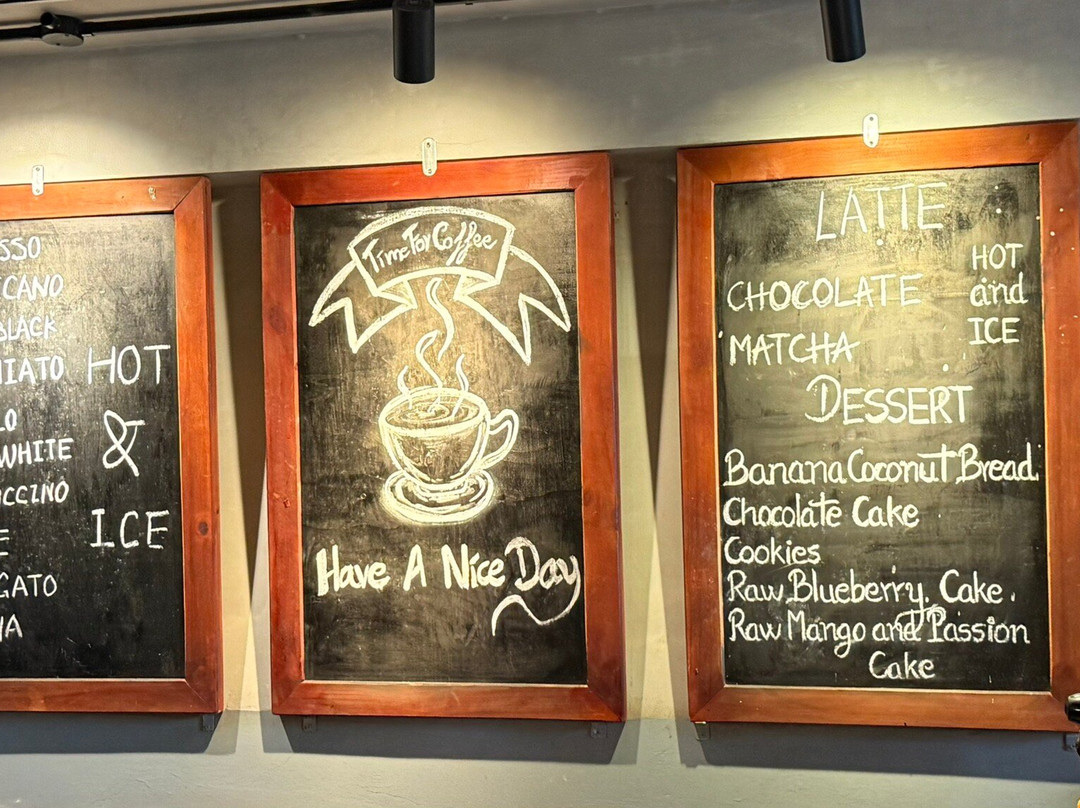 SSO
CANO
BLACK
IATO
LO
WHITE
CCINO
E
GATO
HA
HOT
&
ICE
Time For Coffee
Have A Nice Day
LATTE
CHOCOLATE
MATCHA
HOT
and
ICE
DESSERT
Banana Coconut Bread
Chocolate Cake
Cookies
Raw Blueberry Cake.
Raw Mango and Passion
Cake